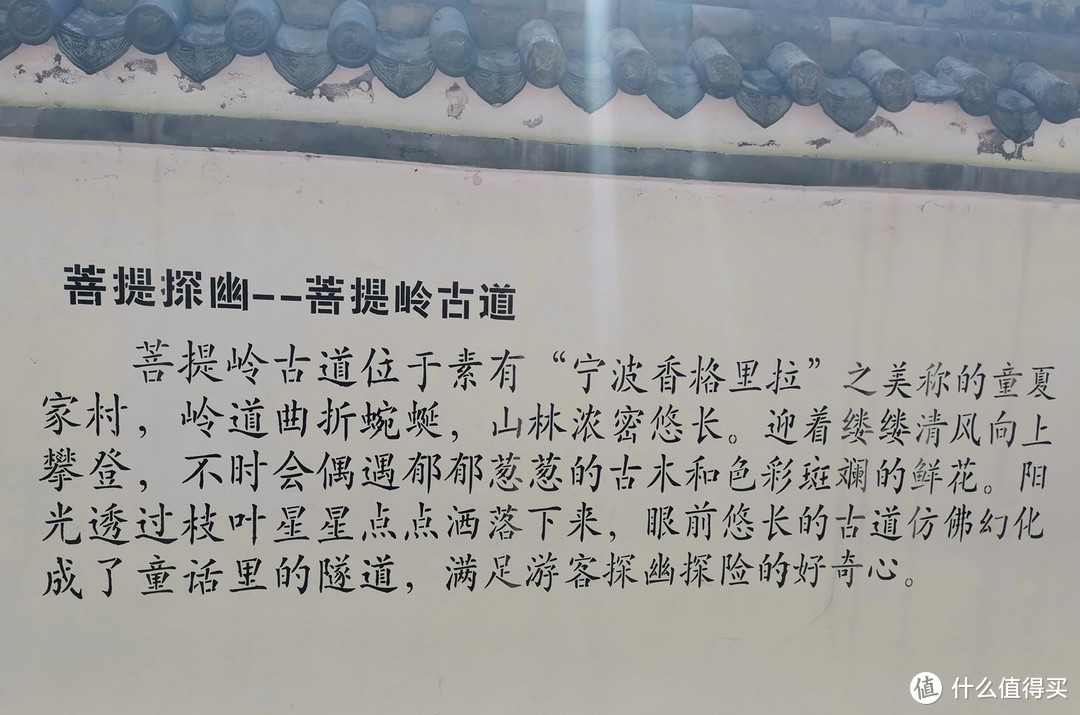 菩提探幽--菩提岭古道
菩提岭古道位于素有“宁波香格里拉”之美称的童夏
家村，岭道曲折蜿蜒，山林浓密悠长。迎着缕缕清风向上
攀登，不时会偶遇郁郁葱葱的古木和色彩斑斓的鲜花。阳
光透过枝叶星星点点洒落下来，眼前悠长的古道仿佛幻化
成了童话里的隧道，满足游客探幽探险的好奇心。
值 什么值得买